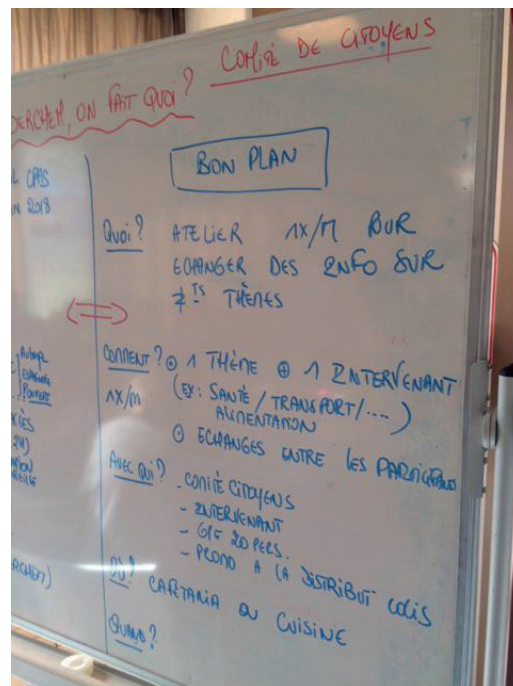 COMITÉ DE CITOYENS
BERCHEM, ON FAIT QUOI?
CPAS
2018
BON PLAN
Quoi? ATELIER 1X/M POUR
ECHANGER DES INFO SUR
≠TS THÈMES
COMMENT? 1 THÈME ⊕ 1 INTERVENANT
1X/m (EX: SANTÉ / TRANSPORT/....)
ALIMENTATION
ECHANGES ENTRE LES PARTICIPANTS
AVEC QUI? - COMITÉ CITOYENS
- INTERVENANT
- GPE 20 PERS.
- PROMO A LA DISTRIBUT° COLIS
OÙ? CAFETARIA OU CUISINE
QUAND?